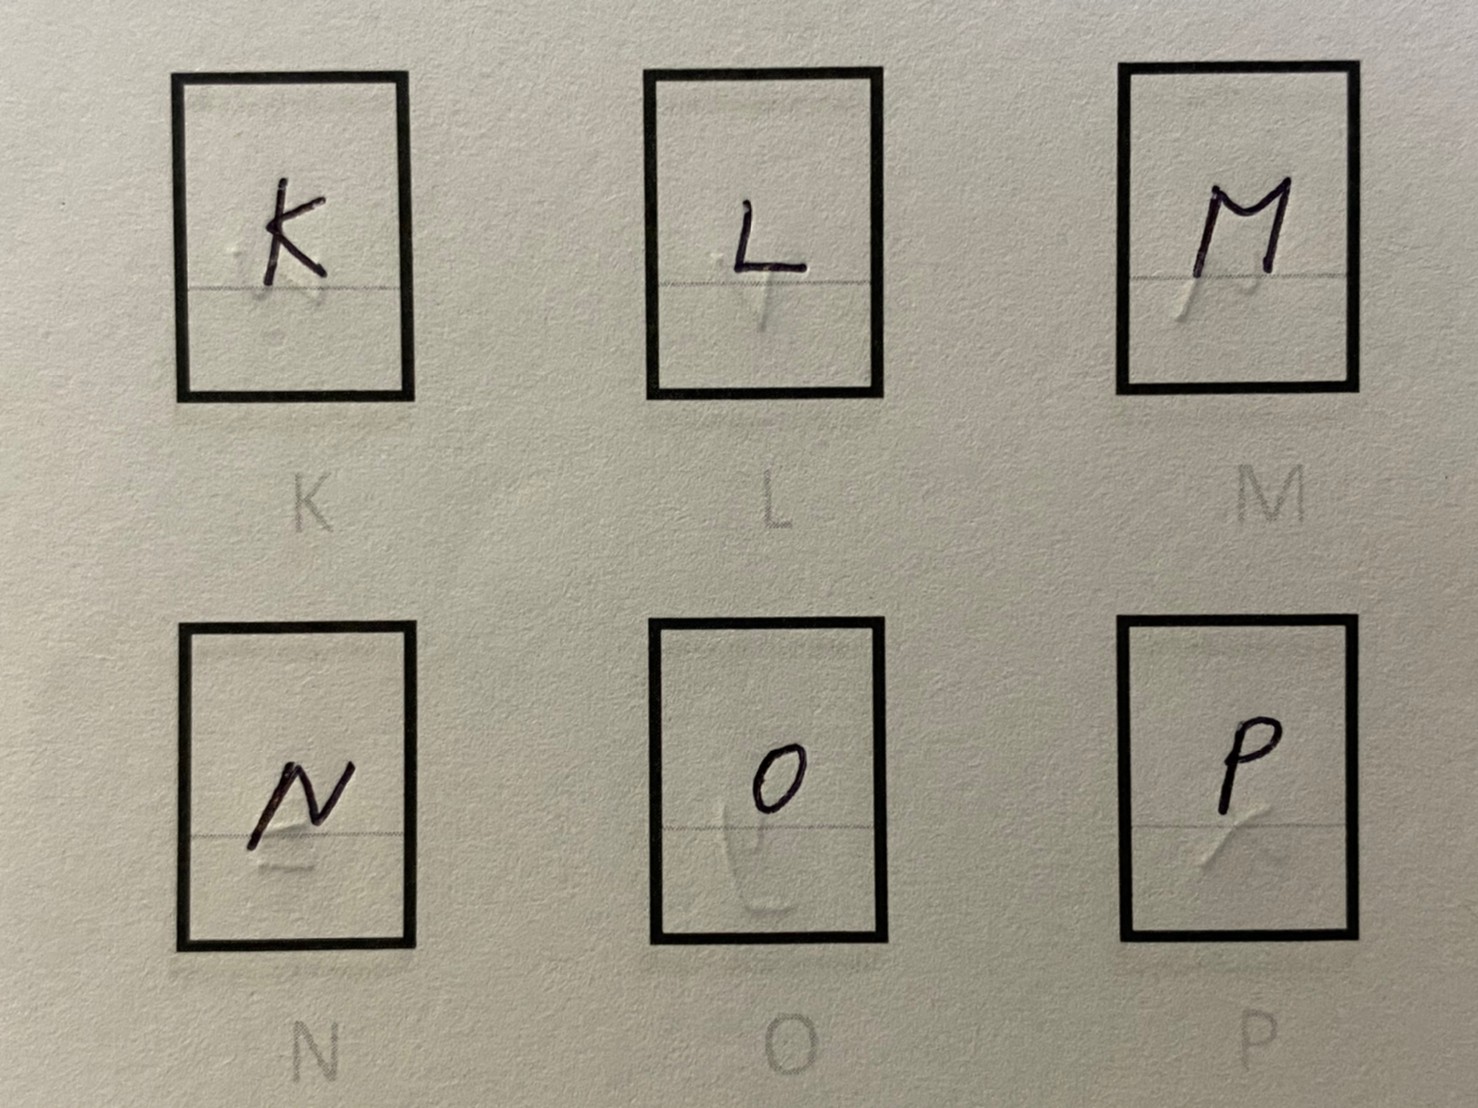 K L M
K L M
N O P
N O P